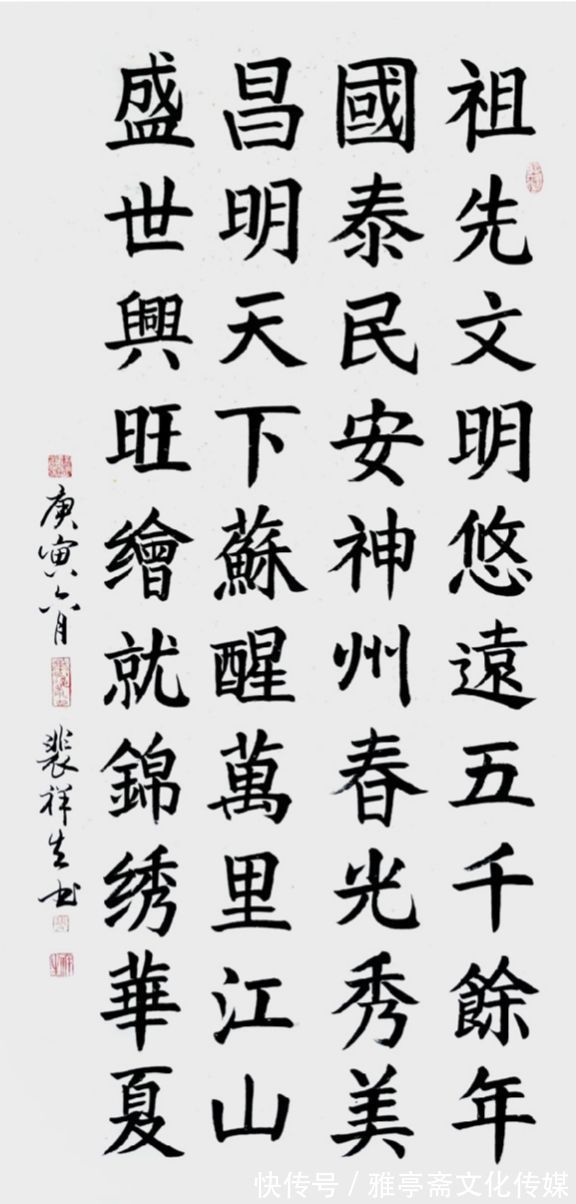 祖先文明悠遠五千餘年
國泰民安神州春光秀美
昌明天下蘇醒萬里江山
盛世興旺繪就錦綉華夏
庚寅六月
裴祥生书
快传号/雅亭斋文化传媒